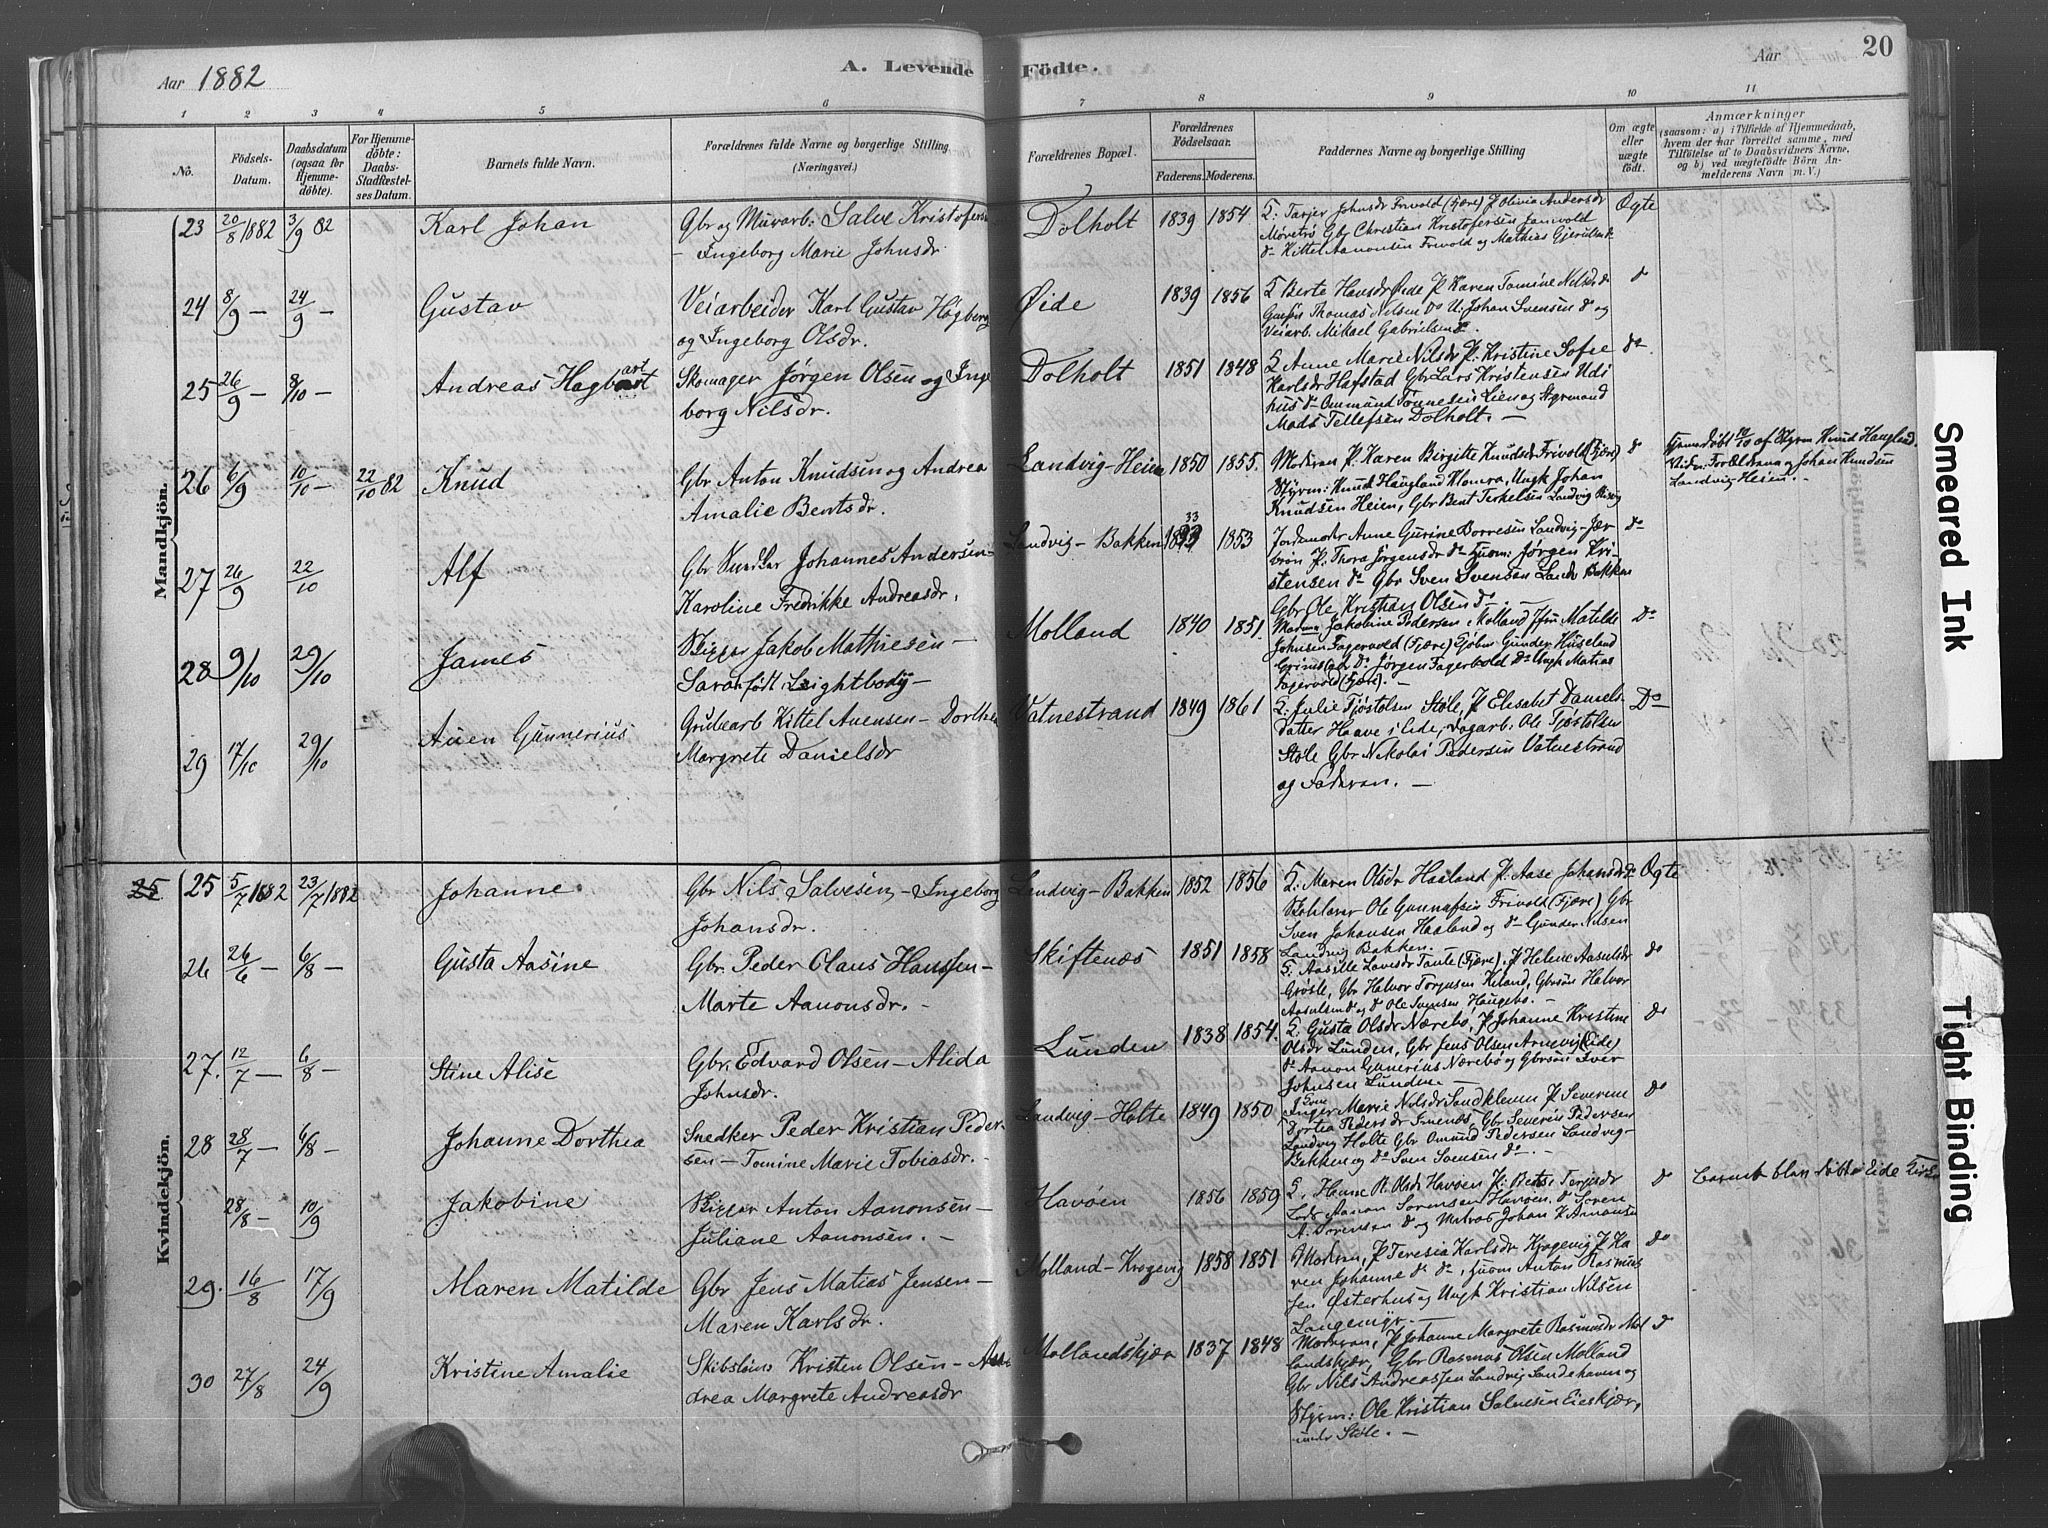 Aar 1882
A. Levende Födte.
Aar
20
1 2 3 4 5 6 7 8 9 10 11
No.
Födsels-
Datum.
Daabsdatum
(ogsaa for
Hjemme-
döbte).
For Hjemme-
döbte:
Daabs-
Stadfæstel-
ses Datum.
Barnets fulde Navn.
Forældrenes fulde Navne og borgerlige Stilling
(Næringsvei.)
Forældrenes Bopæl.
Forældrenes
Födselsaar.
Faderens. Moderens.
Faddernes Navne og borgerlige Stilling
Om ægte
eller
uægte
födt.
Anmærkninger
(saasom: a) i Tilfælde af Hjemmedaab,
hvem der har forrettet samme, med
Tilföielse af to Daabsvidners Navne,
og b) ved uægtefödte Börn An-
melderens Navn m. V.)
Mandkjön.
23 20/8 1882 3/9 82 Karl Johan
Gbr og Murarb. Salve Kristofers
- Ingeborg Marie Johnsdr
Dolholt 1839 1854
Tarjer Johnsdr Frivold (Fjære) P Olivia Andersdr
Møretrø Gbr Christian Kristofersen
do Kittel Aanonsen Frivold og Mathias
Ægte
24 8/9 – 24/9 – Gustav
Veiarbeider Karl Gustav Högberg
og Ingeborg Olsdr.
Øide 1839 1856
Berte Hansdr Øide P Karen Tomine Nilsdr do
Thomas Nilsen do U. Johan Svensen do og
Veiarb. Mikael Gabrielsen do.
do
25 26/9 – 8/10 – Andreas Hagbart
Skomager Jørgen Olsen og Inge
borg Nilsdr.
Dolholt 1851 1848
Anne Marie Nilsdr P. Kristine Sofie
Karlsdr Hafstad Gbr Lars Kristensen Udi
hus do Ommund Tønnesen Lien og Styrmand
Mads Tellefsen Dolholt. –
do
26 6/9 10/10 – 22/10 82 Knud
Gbr Anton Knudsen og Andrea
Amalie Bentsdr.
Landvig-Heien 1850 1855.
Moderen P. Karen Birgitte Knudsdr Frivold (Fjære)
Styrm: Knud Haugland Klomra, Ungk Johan
Knudsen Heien, Gbr Bent Terkelsen Landvig
do
Hjemmedøbt 10/10 af Styrm Knud Haugland.
Vidn: Forældrene og Johan Knudsen
Landvig-Heien. –
27 26/9 22/10 Alf
Gbr Snedker Johannes Andersen-
Karoline Fredrikke Andreasdr.
Landvig – Bakken 33 1853
Jordemoder Anne Gurine Borresen Landvig-Jær
bron P. Thora Jørgensdr do Huom: Jørgen Kri-
stensen do Gbr Sven Svensen Landv Bakken
Gbr Ole Kristian Olsen do
do
28 9/10 29/10 James
Skipper Jakob Mathiesen –
Sarah født Leightbody –
Molland 1840 1851.
Jakobine Pedersen Molland Matilde
Johnsen Fagervold (Fjære) Gunder Huseland
do Jørgen Fagervold do Ungk Matias
Fagervold (Fjære). –
Do
29 17/10 29/10 Auen Gunnerius
Grubearb Kittel Auensen – Dorthea
Margrete Danielsdr
Vatnestrand 1849 1861
Julie Tjøstolsen Støle, P Elisabet Daniels-
datter Haave i Eide, Dagarb. Ole Tjøstolsen
Støle Gbr Nikolai Pedersen Vatnestrand
og Faderen. –
Do
Kvindekjön.
25 25 5/7 1882 23/7 1882. Johanne
Gbr Nils Salvesen – Ingeborg
Johansdr.
Landvig – Bakken 1852 1856
Maren Olsdr Haaland P. Aase Johansdr do
Ole Gunnufsen Frivold (Fjære) Gbr
Sven Johansen Haaland og do Gunder Nilsen
Landvig Bakken.
Ægte
26 26/6 6/8 – Gusta Aasine
Gbr. Peder Olaus Hanssen –
Marte Aanonsdr. –
Skiftenæs 1851 1858
Aasille Larsdr Tante (Fjære), P Helene Aasulsdr
Grøsle, Gbr Halvor Torgusen Kiland, Gbrsøn Halvor
Aasulsen do og do Ole Svensen Haugebo. –
do
27. 12/7 – 6/8 – Stine Alise
Gbr. Edvard Olsen – Alida
Johnsdr.
Lunden 1838 1854.
Gusta Olsdr Nærebø, P Johanne Kristine
Olsdr Lunden, Gbr Jens Olsen Arnevig (Eide)
do Aanon Gunerius Nærebø og Gbrsøn Iver
Johnsen Lunden –
do
28 28/7 – 6/8 – Johanne Dorthea
Snedker Peder Kristian Peder-
sen – Tomine Marie Tobiasdr. –
Landvig – Holte 1849 1850
Inger Marie Nilsdr Sandkleven P Severine
Dortea Pedersdr Gbr Severin Pedersen
Landvig Holte Gbr Omund Pedersen Landvig-
Bakken og do Sven Svensen do. –
do
28/8 – 10/9 Jakobine
Skipper Anton Aanonsen –
Juliane Aanonsen. –
Havøen 1856 1859
Hanne Olsdr Havøen P. Berte Terjesdr
Lods Aanon Sørensen Havøen. do Søren
A. Sørensen do og Matros Johan K Amonsen
do
Barnet blev døbt i Eide Kirke
29. 16/8 17/9 Maren Matilde
Gbr Jens Matias Jensen –
Maren Karlsdr.
Molland – Krogevig 1858 1851
Modren, P Teresia Karlsdr Krogevig P. Ka
ren Johanne do do, Huom Anton Rasmus
sen Østerhus og Ungk Kristian Nilsen
Langemyr. –
do
30 27/8 24/9 Kristine Amalie
Kristen Olsen – And
drea Margrete Andreasdr
Mollandskjær 1837 1848
Moderen, P Johanne Margrete Rasmusdr Mol
landskjær, Gbr Rasmus Olsen Molland
Gbr Nils Andreassen Landvig Landehavn og
Styrm: Ole Kristian Salvesen Eieskjær,
under Støle. –
do
Smeared Ink
Tight Binding